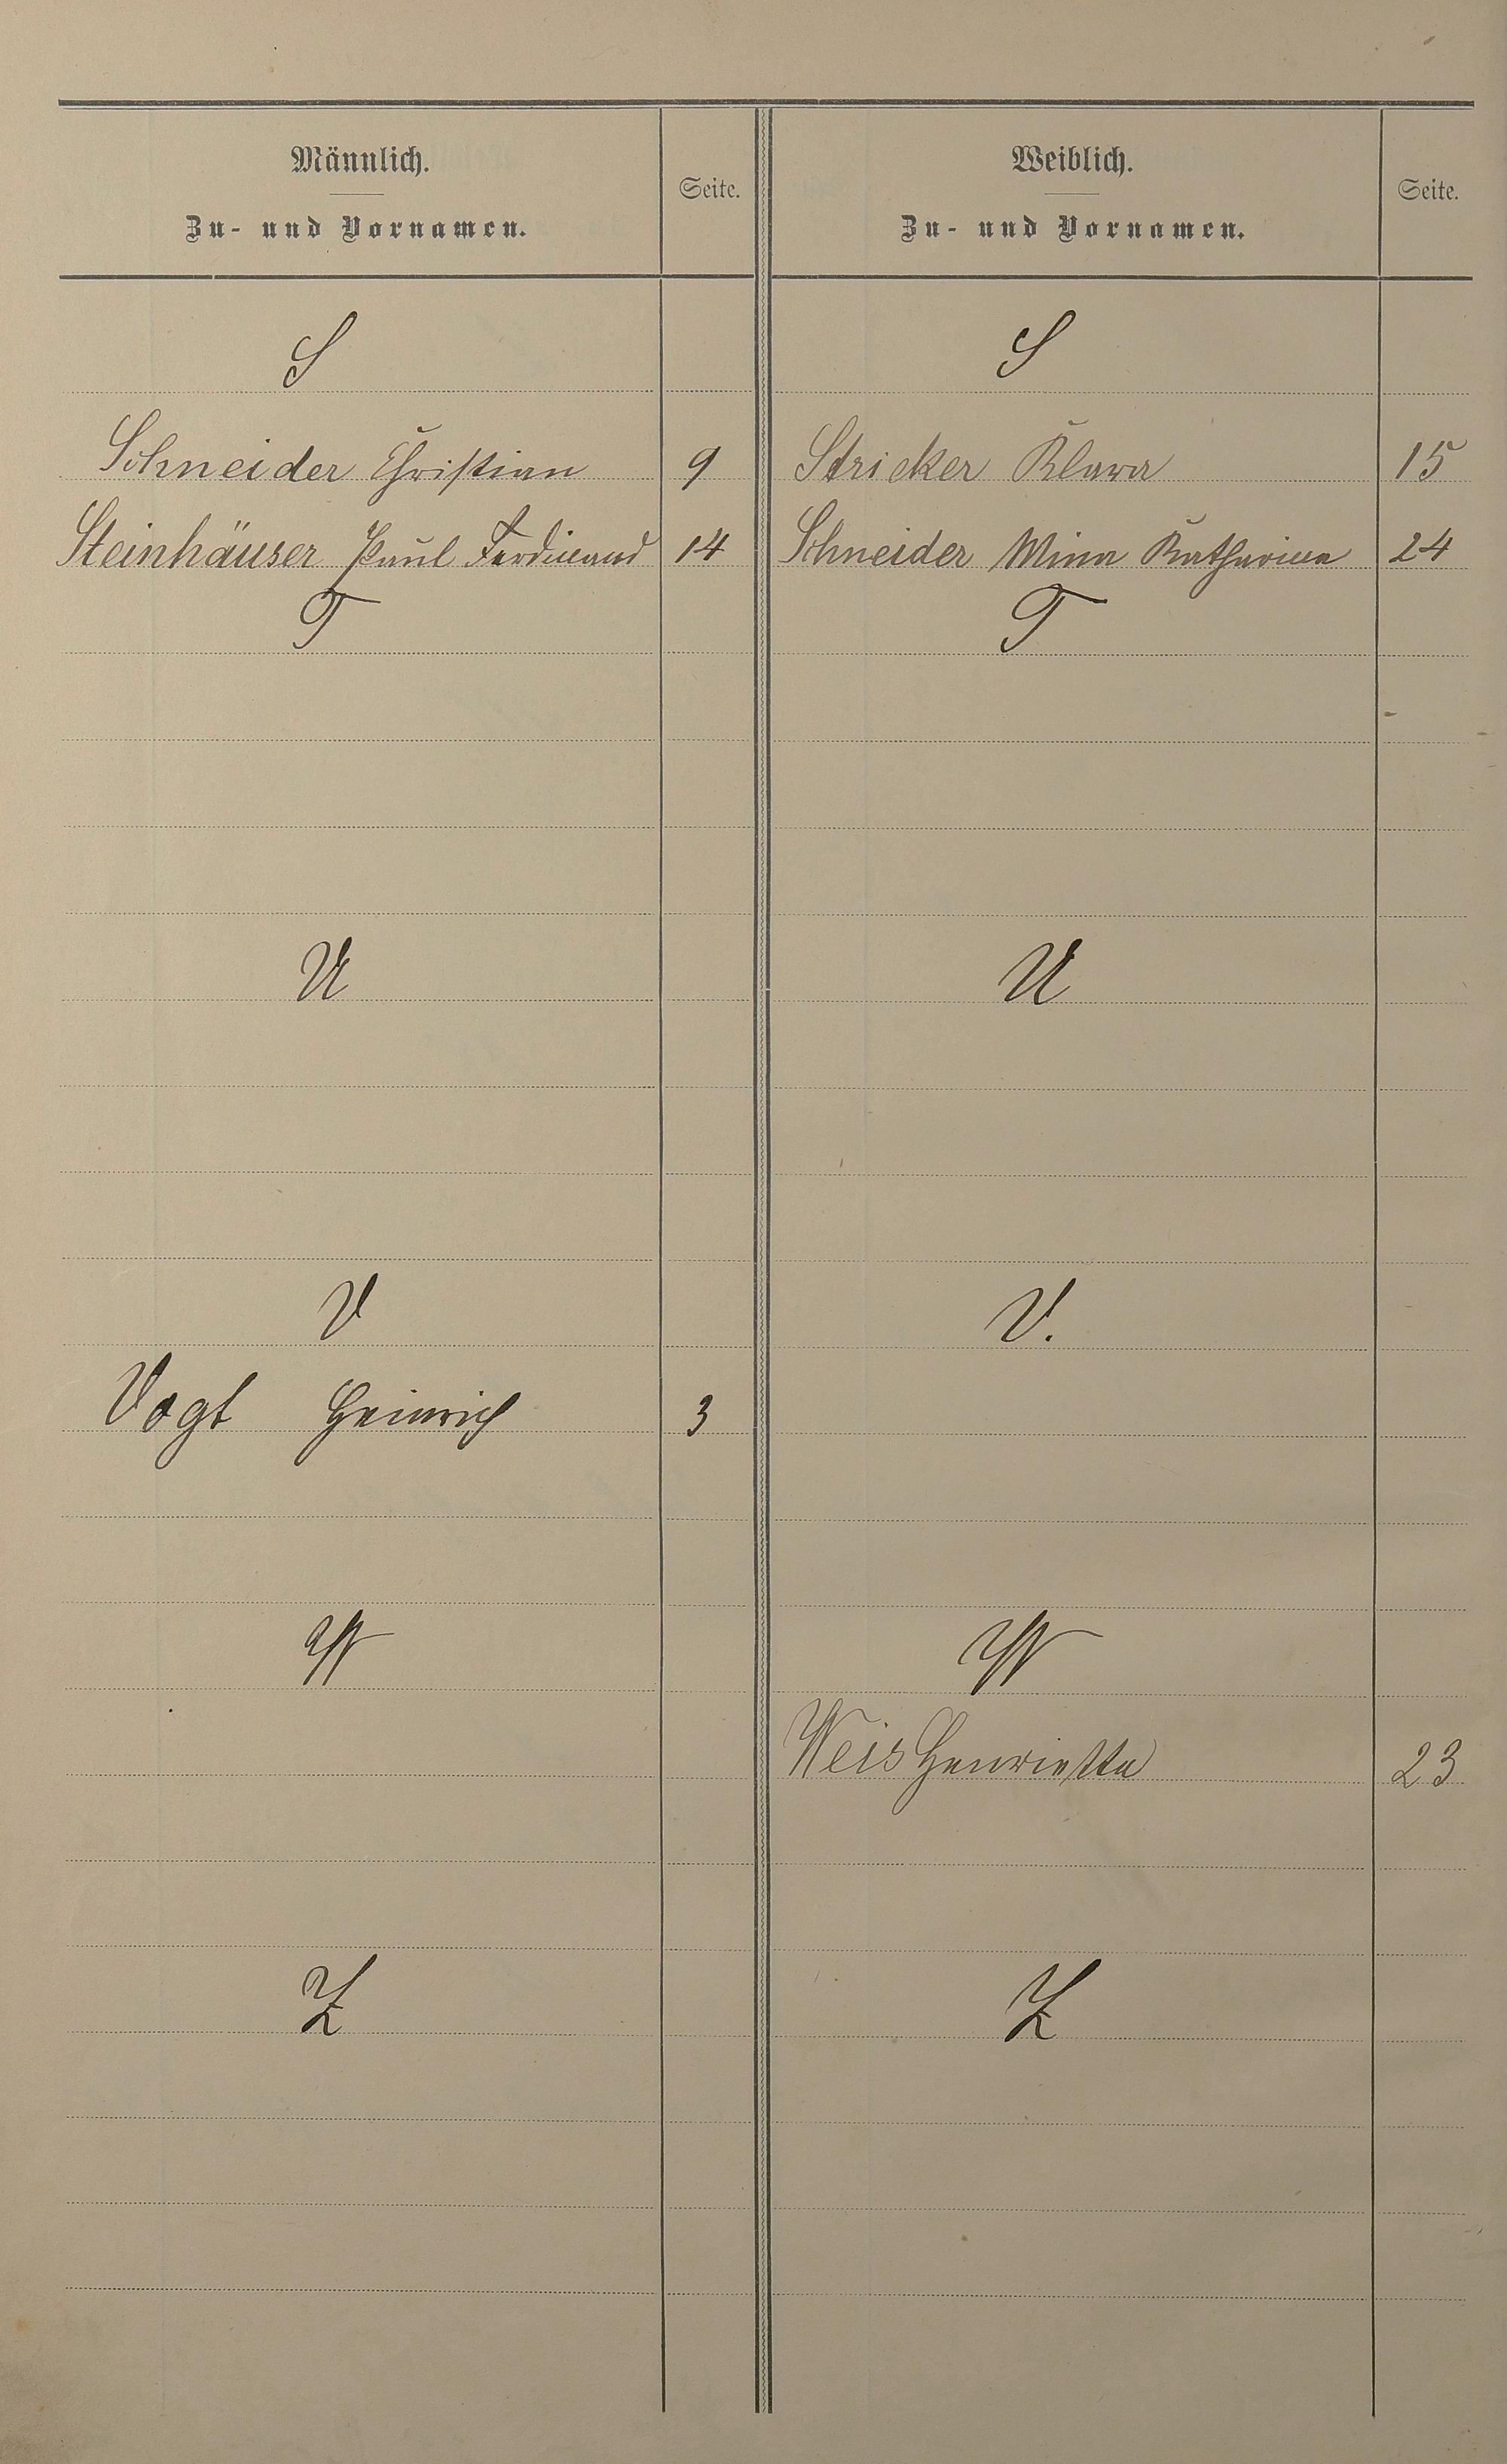 Männlich.
Zu- und Vornamen.
Seite.
Weiblich.
Zu- und Vornamen.
Seite.
S
S
Schneider Christian 9
Stricker Klara 15
Steinhäuser Paul Ferdinand 14
Schneider Mina Katharina 24
T
T
U
U
V
V.
Vogt Heinrich 3
W
W
Weis Henrietta 23
Z
Z